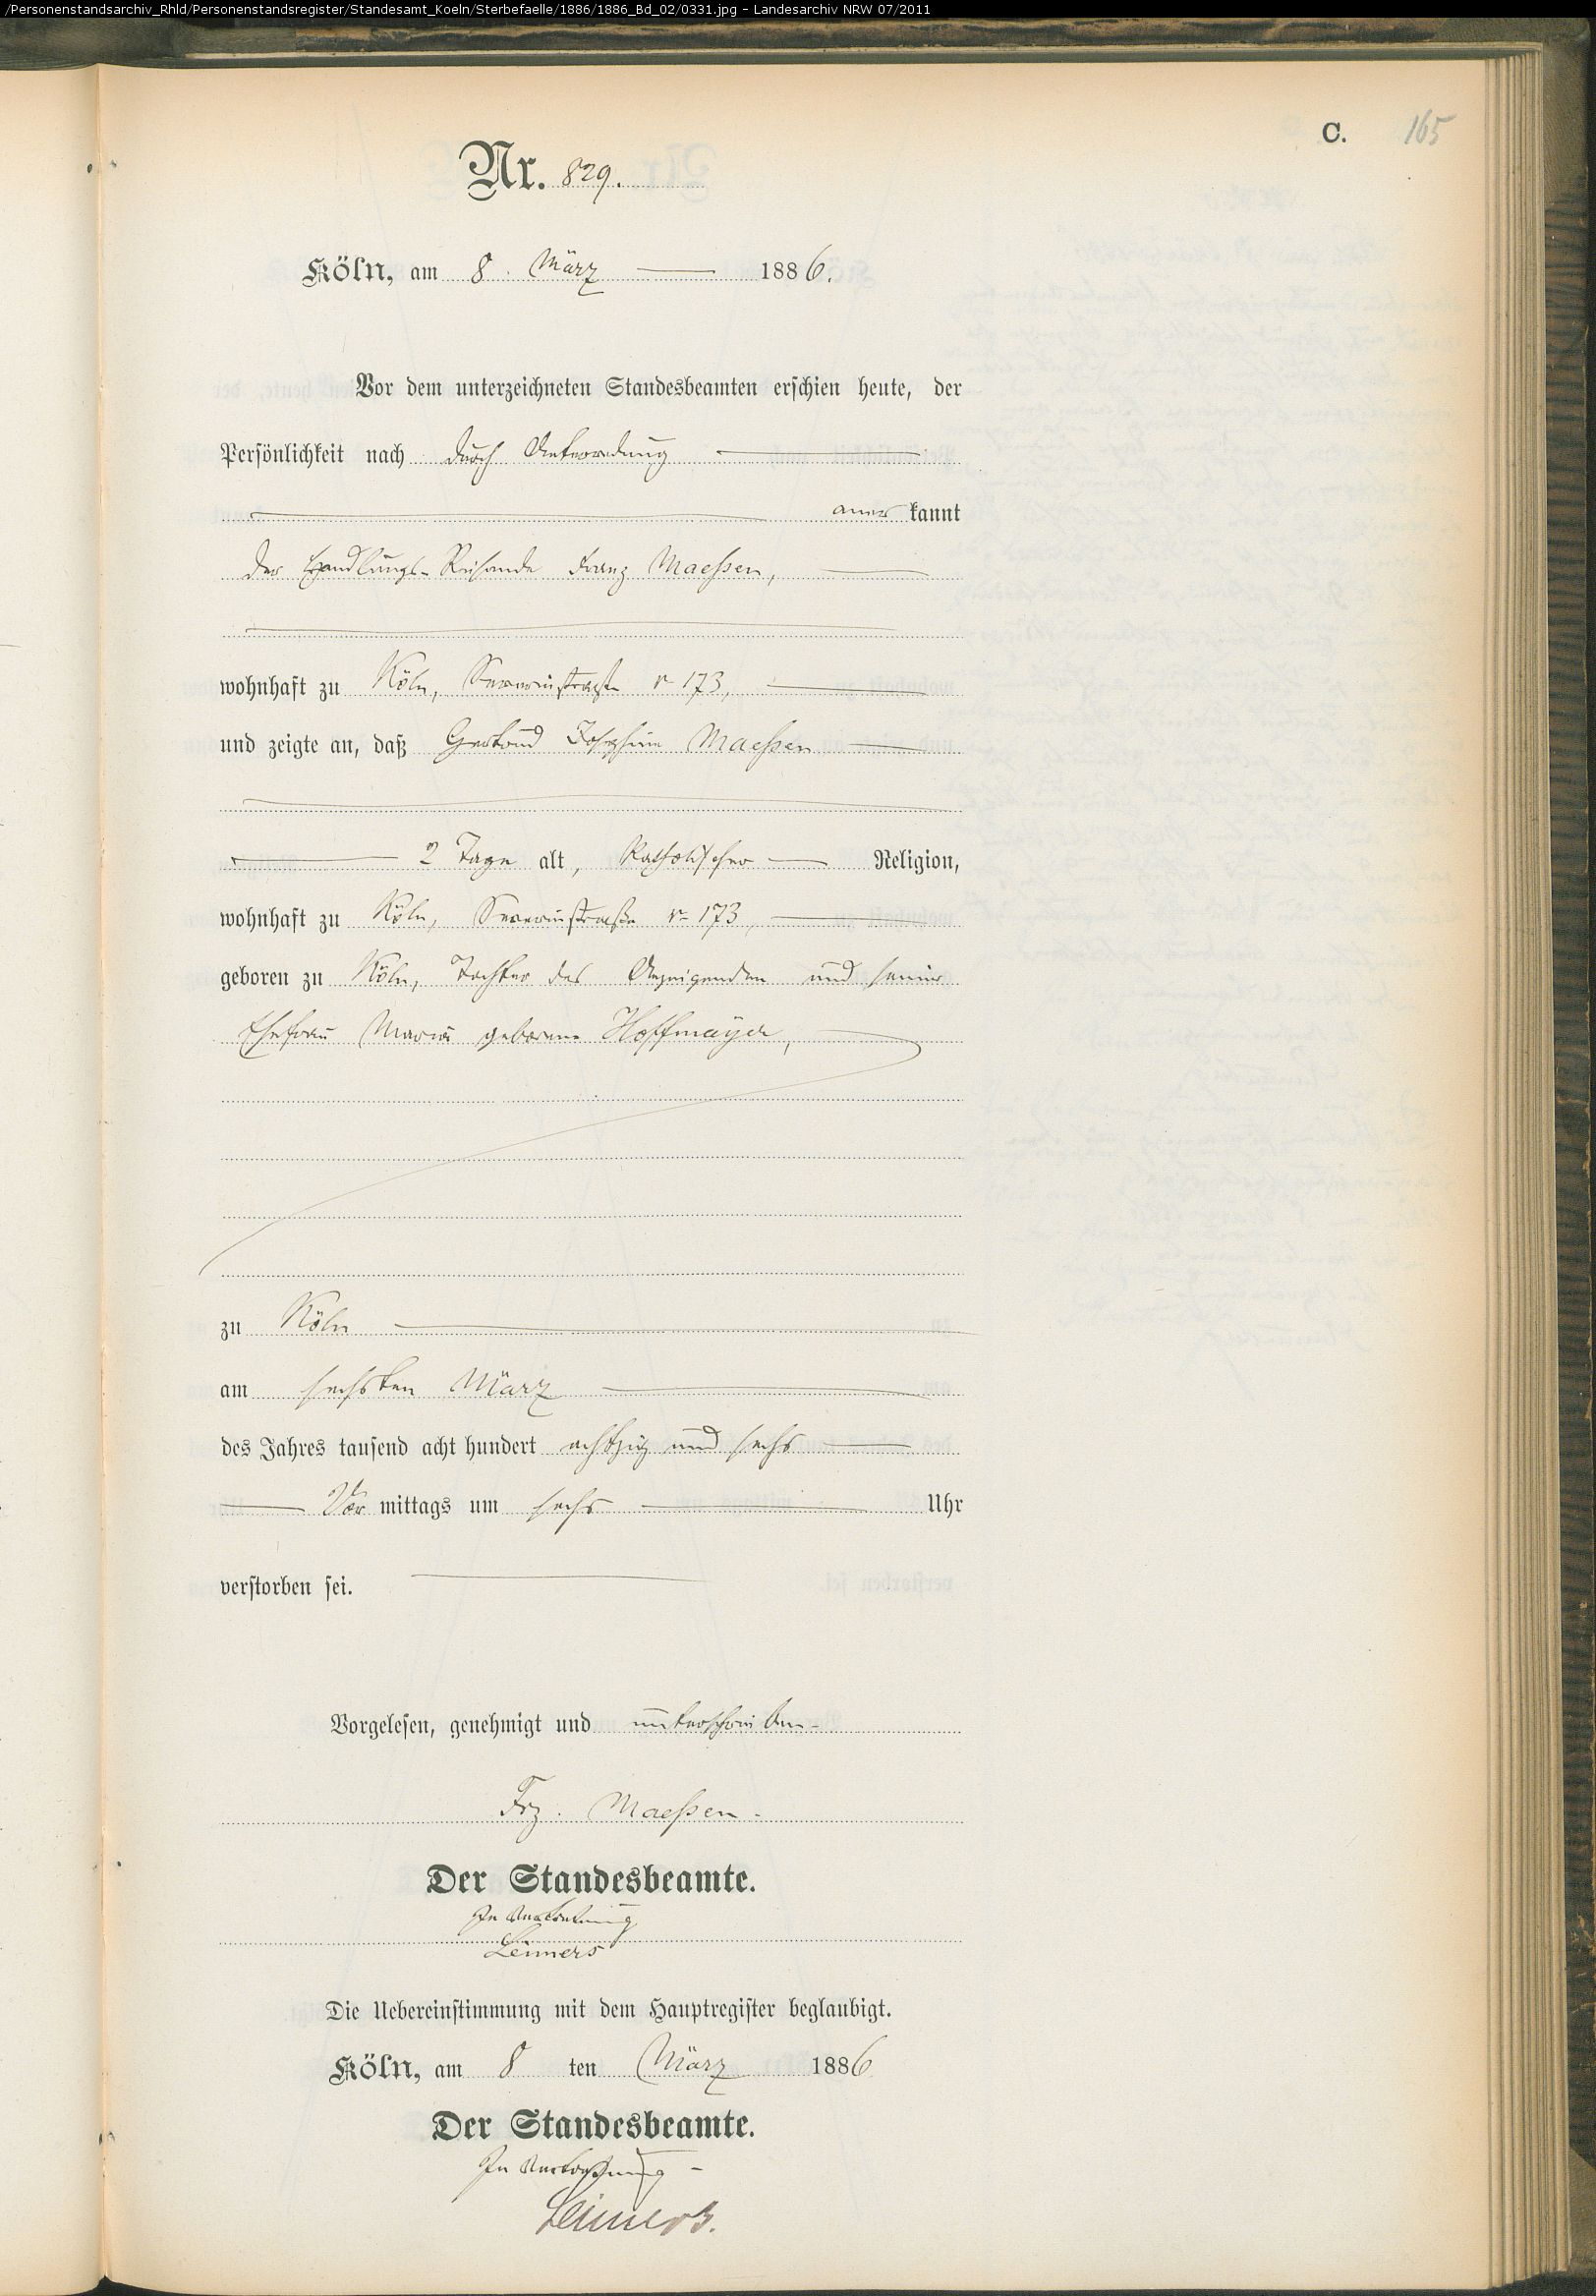 /Personenstandsarchiv_Rhld/Personenstandsregister/Standesamt_Koeln/Sterbefaelle/1886/1886_Bd_02/0331.jpg - Landesarchiv NRW 07/2011
C. 165
Nr. 829.
Köln, am 8. März 1886.
Vor dem unterzeichneten Standesbeamten erschien heute, der
Persönlichkeit nach durch Unterredung
anerkannt
der Handlungs-Reisende Franz Maeßen,
wohnhaft zu Köln, Severinstraße No 173,
und zeigte an, daß Gertrud Josephine Maeßen
2 Tage alt, katholischer Religion,
wohnhaft zu Köln, Severinstraße No 173,
geboren zu Köln, Tochter des Anzeigenden und seiner
Ehefrau Maria geborene Hoffmayer,
zu Köln
am sechsten März
des Jahres tausend acht hundert achtzig und sechs
Vor mittags um sechs Uhr
verstorben sei.
Vorgelesen, genehmigt und unterschrieben
Frz. Maeßen.
Der Standesbeamte.
In Vertretung
Leiners
Die Uebereinstimmung mit dem Hauptregister beglaubigt.
Köln, am 8 ten März 1886
Der Standesbeamte.
In Vertretung
Leiners.